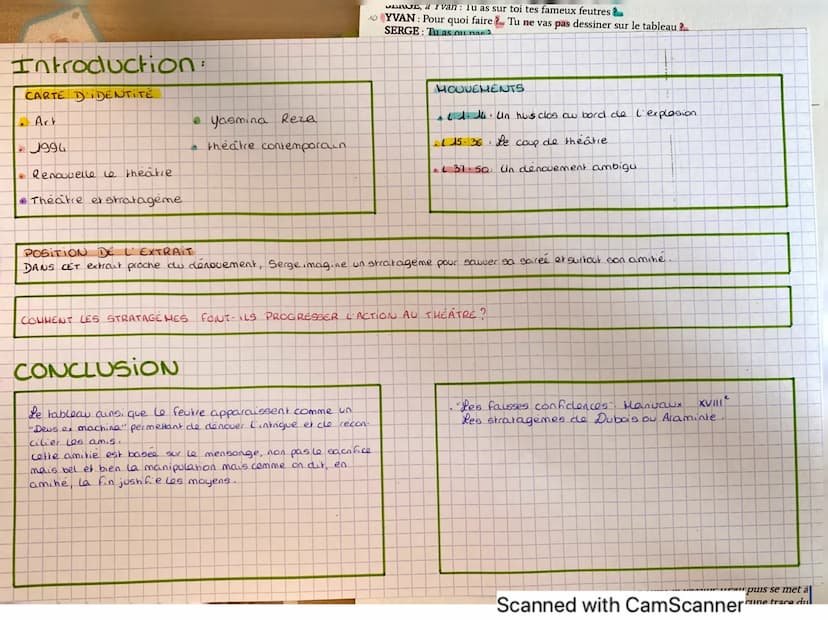 SERGE, à Yvan : Tu as sur toi tes fameux feutres ?
YVAN : Pour quoi faire ?... Tu ne vas pas dessiner sur le tableau ?...
SERGE : Tu as ou pas ?
Introduction :
CARTE D'IDENTITÉ
Art
Yasmina Reza
1994
théâtre contemporain
Renouvelle le théâtre
Théâtre et stratagème
MOUVEMENTS
L 1-14 : Un huis clos au bord de l'explosion
L 15-36 : Le coup de théâtre
L 37-50 : Un dénouement ambigu
POSITION DE L'EXTRAIT
DANS CET extrait proche du dénouement, Serge imagine un stratagème pour sauver sa soirée et surtout son amitié.
COMMENT LES STRATAGÈMES FONT-ILS PROGRESSER L'ACTION AU THÉÂTRE ?
CONCLUSION
Le tableau ainsi que le feutre apparaissent comme un
"Deus ex machina" permettant de dénouer l'intrigue et de récon-
cilier les amis.
cette amitié est basée sur le mensonge, non pas le sacrifice
mais bel et bien la manipulation mais comme on dit, en
amitié, la fin justifie les moyens.
"Les fausses confidences" Marivaux XVIIIe
Les stratagèmes de Dubois ou Araminte.
puis se met à
une trace du
Scanned with CamScanner